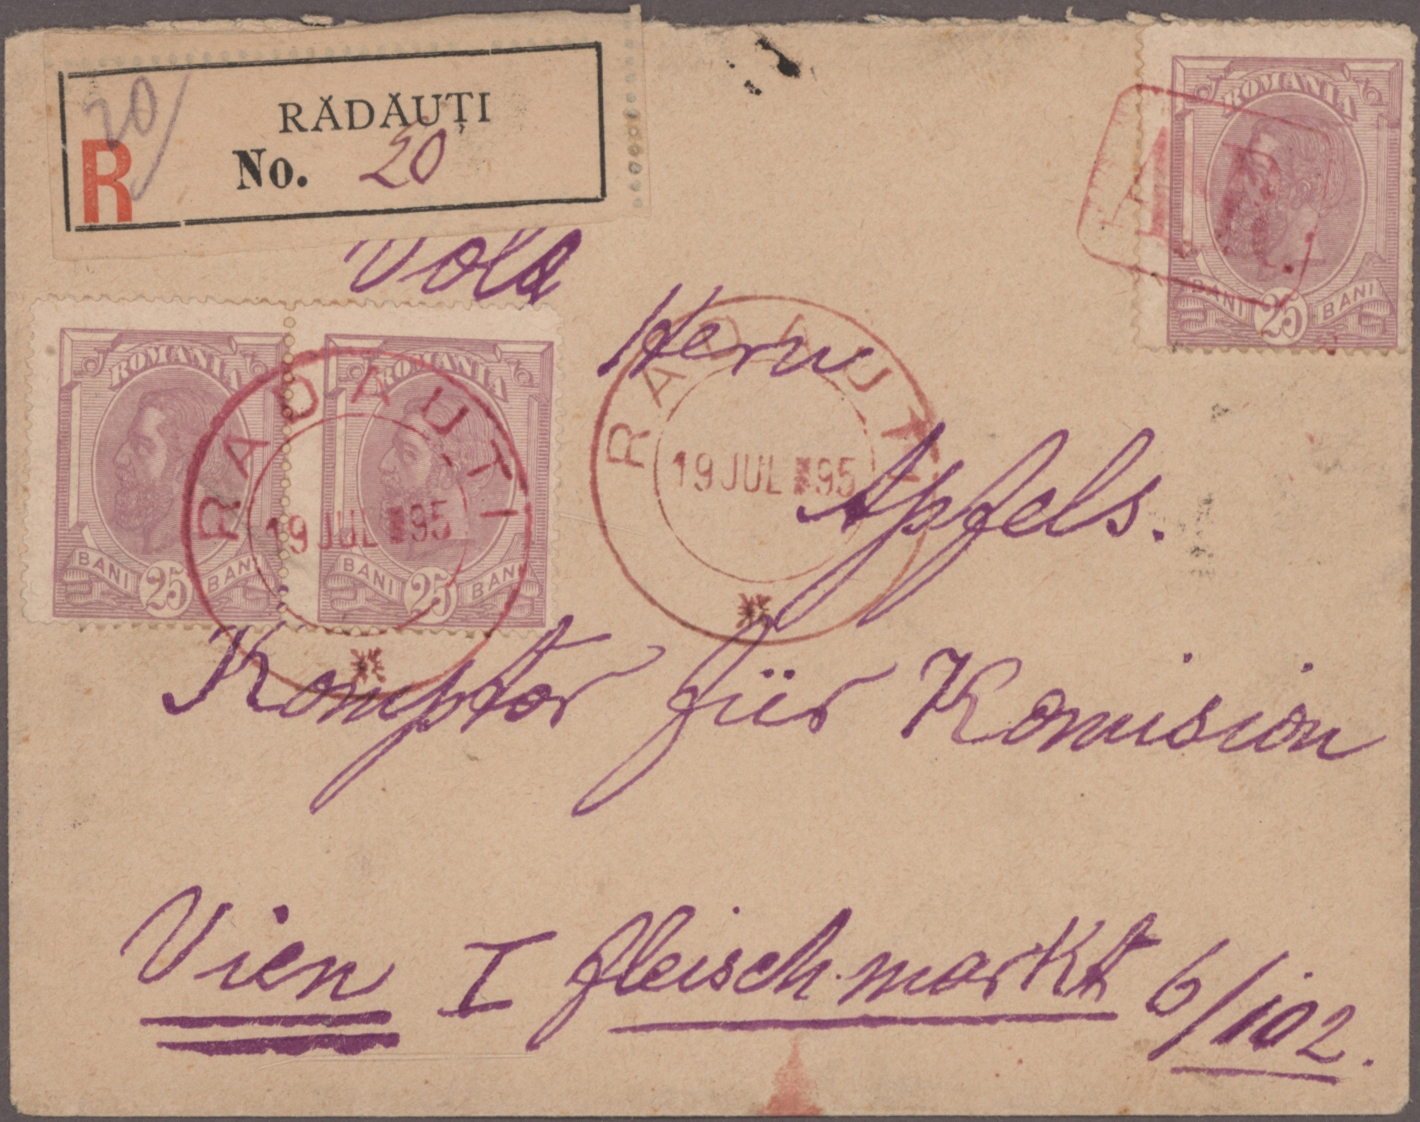 20/
RĂDĂUȚI
R No. 20
ROMANIA
BANI 25 BANI
A.R.
Herrn
ROMANIA
BANI 25 BANI
ROMANIA
BANI 25 BANI
RADAUTI
19 JUL 95
RADAUTI
19 JUL 95
Apfels.
Komptor für Komision
Vien I fleischmarkt 6/102.